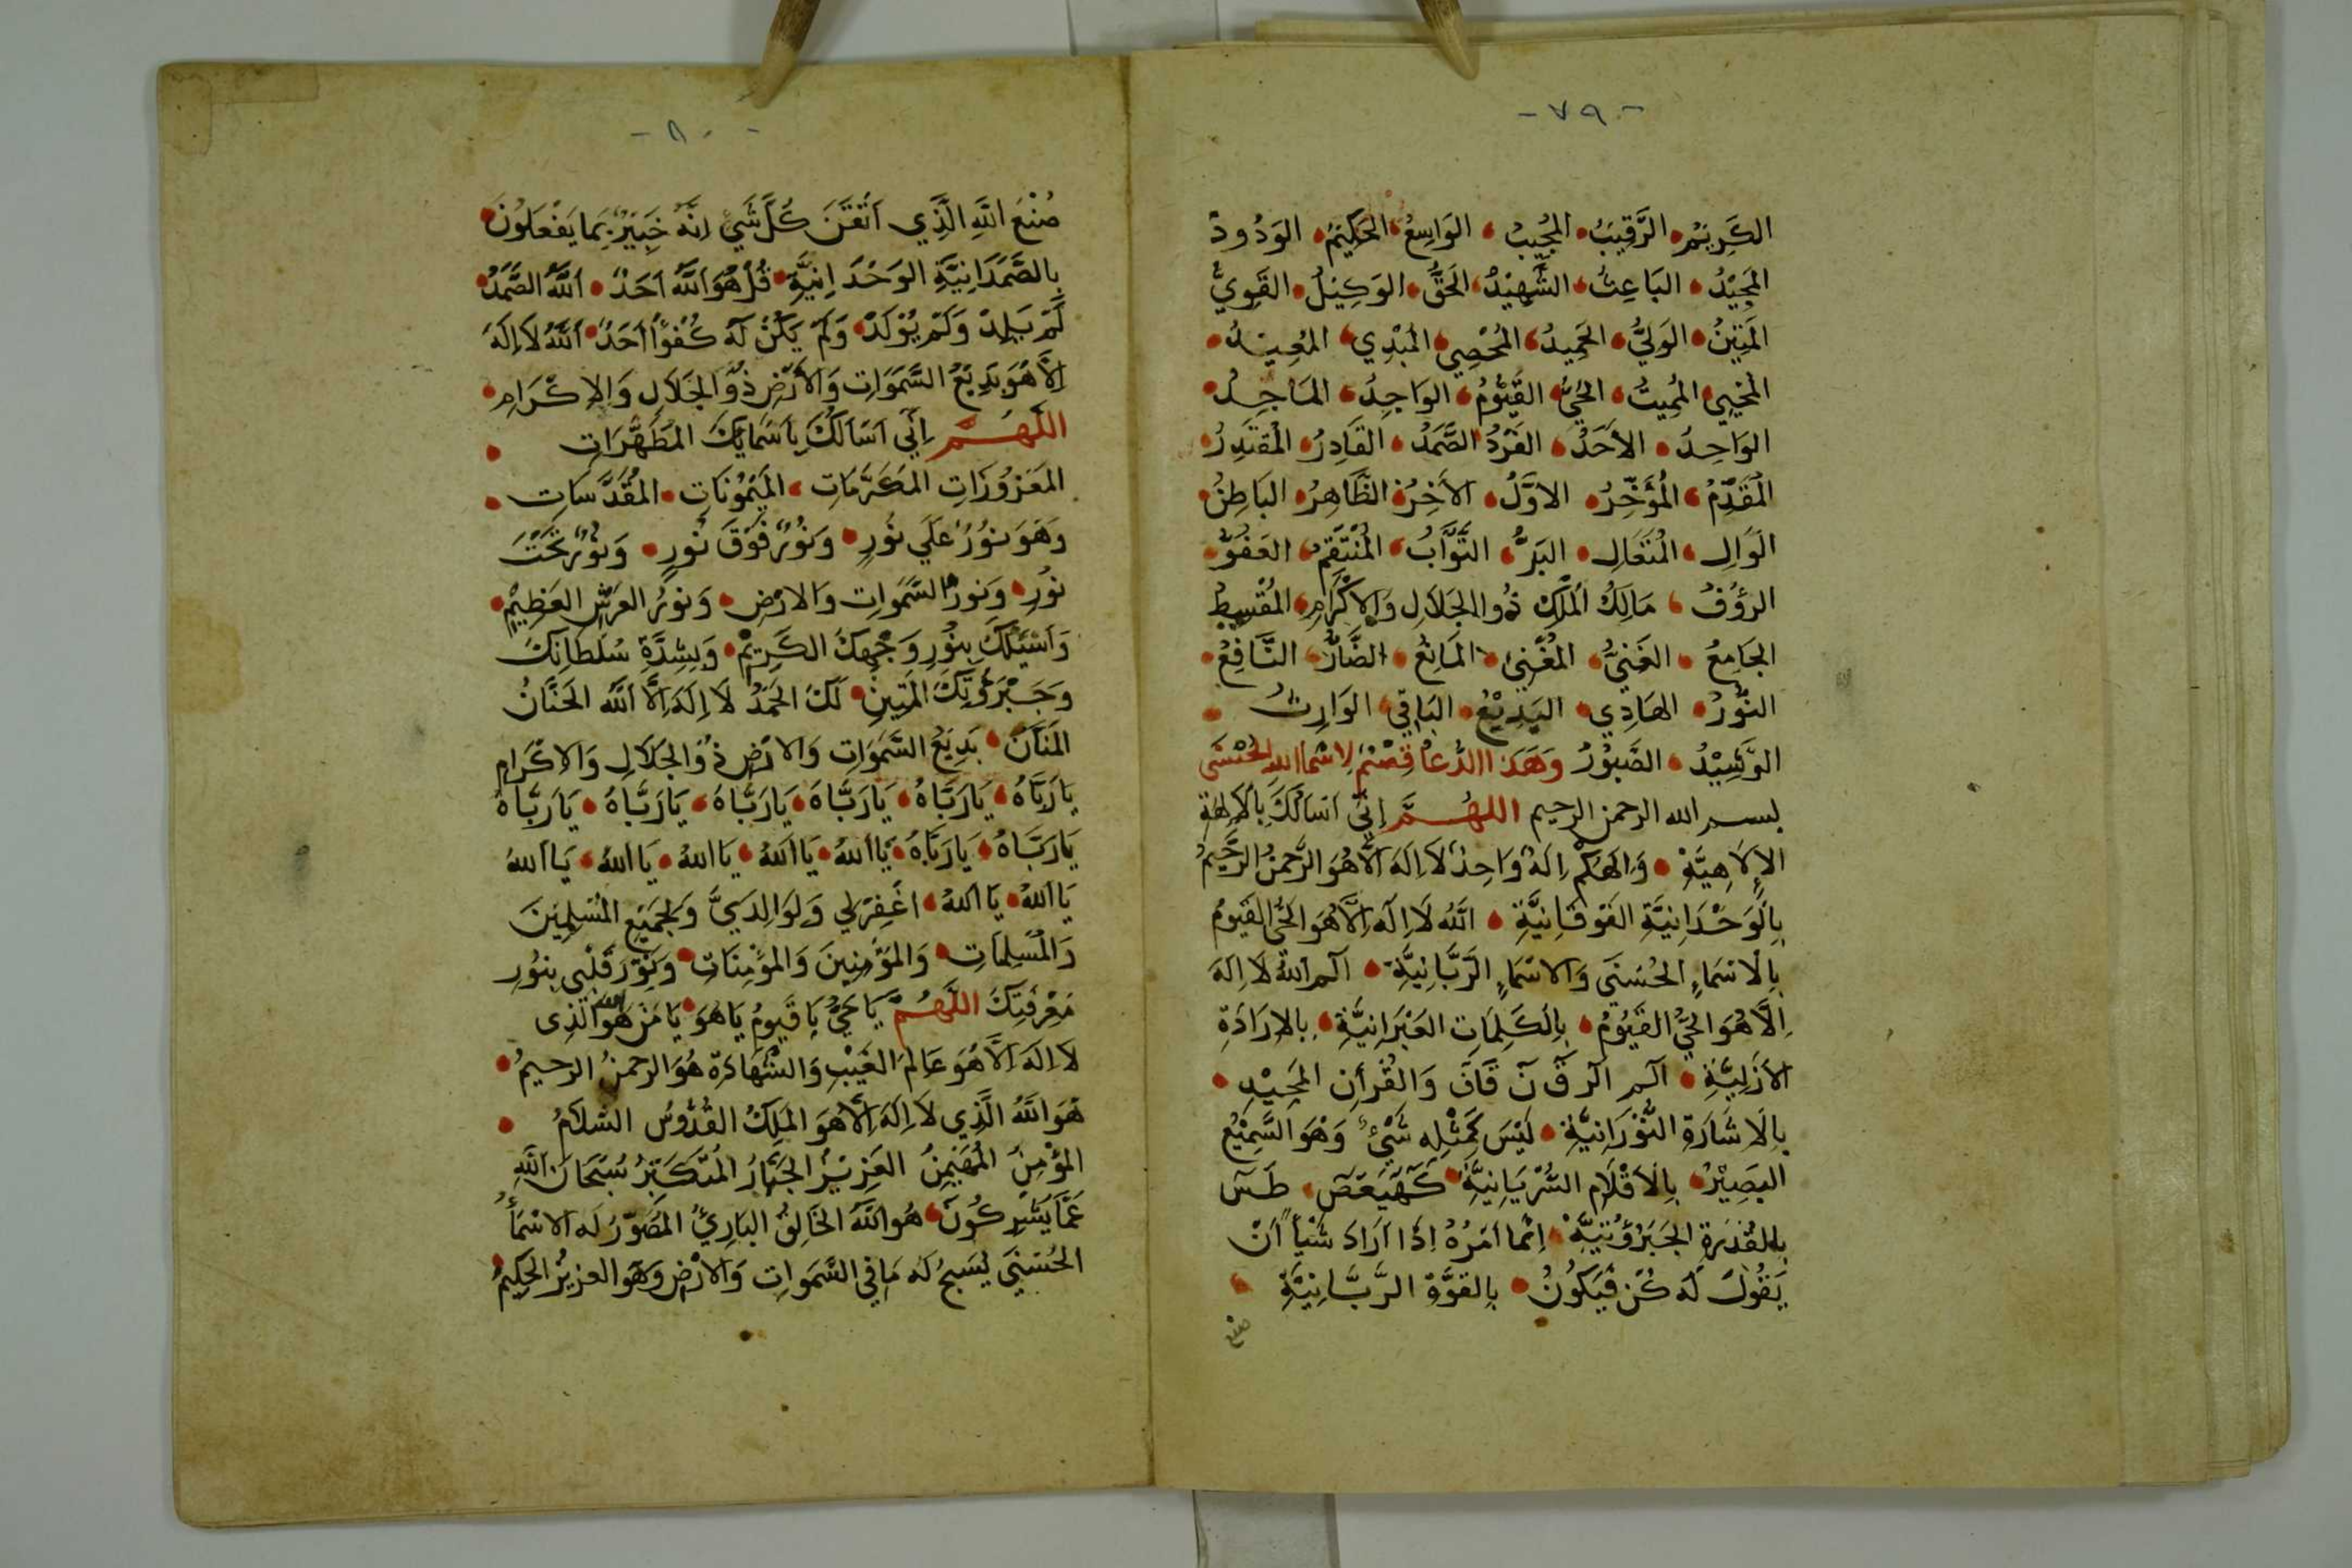 -٧٩-
الكَرِيْمُ الرَّقِيْبُ المُجِيْبُ الوَاسِعُ الحَكِيْمُ الوَدُودُ
المَجِيْدُ البَاعِثُ الشَّهِيْدُ الحَقُّ الوَكِيْلُ القَوِيُّ
المَتِيْنُ الوَلِيُّ الحَمِيْدُ المُحْصِي المُبْدِي المُعِيْدُ
المُحْيِي المُمِيتُ الحَيُّ القَيُّوْمُ الوَاجِدُ المَاجِدُ
الوَاحِدُ الاَحَدُ الفَرْدُ الصَّمَدُ القَادِرُ المُقْتَدِرُ
المُقَدِّمُ المُؤَخِّرُ الاَوَّلُ الاَخِرُ الظَّاهِرُ البَاطِنُ
الوَالِ المُتَعَالِ البَرُّ التَّوَّابُ المُنْتَقِمُ العَفُوُّ
الرَؤُفُ مَالِكُ المُلْكِ ذُوالجَلَالِ وَالاِكْرَامِ المُقْسِطُ
الجَامِعُ الغَنِيُّ المُغْنِي المَانِعُ الضَّارُّ النَّافِعُ
النُّوْرُ الهَادِي البَدِيْعُ البَاقِي الوَارِثُ
الرَّشِيْدُ الصَّبُوْرُ وَهَذَا الدُّعَا قِسْمٌ لِاسْمَاالله الحُسْنَى
بسم الله الرحمن الرحيم اللهُمَّ اِنِّي اَسَالُكَ بِالاَلِهَةِ
الاِلَاهِيَّةِ وَاِلَهُكُمْ اِلَهٌ وَاحِدٌ لَا اِلَهَ اِلَّا هُوَ الرَّحْمنُ الرَّحِيْمُ
بِالوَحْدَانِيَّةِ الفَوْقَانِيَّةِ اَللّهُ لَا اِلَهَ اِلَّا هُوَ الحَيُّ القَيُّومُ
بِالاَسْمَاءِ الحُسْنَى وَالاَسْمَاءِ الرَّبَّانِيَّةِ الٓم اَللهُ لَا اِلَهَ
اِلَّا هُوَ الحَيُّ القَيُّوْمُ بِالكَلِمَاتِ العَبْرَانِيَّةِ بِالاِرَادَةِ
الاَزَلِيَّةِ الٓم الٓر قٓ نٓ قَافَ وَالقُرْأنِ المَجِيْدِ
بِالاَشَارَةِ النُّوْرَانِيَّةِ لَيْسَ كَمِثْلِهِ شَيْءٌ وَهُوَ السَّمِيْعُ
البَصِيْرُ بِالاَقْلَامِ السُّرْيَانِيَّةِ كَهٓيٰعٓصٓ طَسٓ
بِالقُدْرَةِ الجَبَرُوْتِيَّةِ اِنَّمَا اَمْرُهُ اِذَا اَرَادَ شَيْأً اَنْ
يَقُوْلَ لَهُ كُنْ فَيَكُوْنُ بِالقُوَّةِ الرَّبَّانِيَّةِ
صنع
-٨٠-
صُنْعَ اللَّهِ الَّذِي اَتْقَنَ كُلَّ شَيْءٍ اِنَّهُ خَبِيْرٌ بِمَا يَفْعَلُوْنَ
بِالصَّمَدَانِيَّةِ الوَحْدَانِيَّةِ قُلْ هُوَ اَللَّهُ اَحَدٌ اَللَّهُ الصَّمَدُ
لَمْ يَلِدْ وَلَمْ يُوْلَدْ وَلَمْ يَكُنْ لَهُ كُفُوًا اَحَدٌ اَللَّهُ لَا اِلَهَ
اِلَّا هُوَ بَدِيْعُ السَّمَوَاتِ وَالاَرْضِ ذُوالجَلَالِ وَالاِكْرَامِ
اللَّهُمَّ اِنِّي اَسَالُكَ بِاَسْمَايِكَ المُطَهَّرَاتِ
المَعْزُوزَاتِ المُكَرَّمَاتِ المَيْمُوْنَاتِ المُقَدَّسَاتِ
وَهُوَ نُوْرٌ عَلَى نُوْرٍ وَنُوْرٌ فَوْقَ نُورٍ وَنُوْرٌ تَحْتَ
نُورٍ وَنُورُ السَّمَوَاتِ وَالاَرْضِ وَنُورُ العَرْشِ العَظِيْمِ
وَاَسْئَلُكَ بِنُوْرِ وَجْهِكَ الكَرِيْمِ وَبِشِدَّةِ سُلْطَانِكَ
وَجَبَرُوْتِكَ المَتِيْنِ لَكَ الحَمْدُ لَا اِلَهَ اِلَّا اَللَّهُ الحَنَّانُ
المَنَّانُ بَدِيْعُ السَّمَوَاتِ وَالاَرْضِ ذُوالجَلَالِ وَالاِكْرَامِ
يَارَبَّاهُ يَارَبَّاهُ يَارَبَّاهُ يَارَبَّاهُ يَارَبَّاهُ يَارَبَّاهُ
يَارَبَّاهُ يَارَبَّاهُ يَااَللهُ يَااَللهُ يَااللهُ يَااللهُ يَااَللهُ
يَااَللهُ يَااَللهُ اغْفِرْلِي وَلِوَالِدَيَّ وَلِجَمِيْعِ المُسْلِمِيْنَ
وَالمُسْلِمَاتِ وَالمُؤْمِنِيْنَ وَالمُؤْمِنَاتِ وَنَوِّرْ قَلْبِي بِنُوْرِ
مَعْرِفَتِكَ اللَّهُمَّ يَاحَيُّ يَاقَيُّومُ يَاهُوَ يَامَنْ هُوَ الله الَّذِى
لَا اِلَهَ اِلَّا هُوَ عَالِمُ الغَيْبِ وَالشَّهَادَةِ هُوَ الرحمنُ الرحيمُ
هُوَ اَللَّهُ الَّذِي لَا اِلَهَ اِلَّا هُوَ المَلِكُ القُدُّوسُ السَّلَامُ
المُؤْمِنُ المُهَيْمِنُ العَزِيْزُ الجَبَّارُ المُتَكَبِّرُ سُبْحَانَ اللَّهِ
عَمَّا يُشْرِكُونَ هُوَ اللَّهُ الخَالِقُ البَارِئُ المُصَوِّرُ لَهُ الاَسْمَأُ
الحُسْنَى يُسَبِحُ لَهُ مَا فِي السَّمَوَاتِ وَالاَرْضِ وَهُوَ العَزِيزُ الحَكِيْمُ